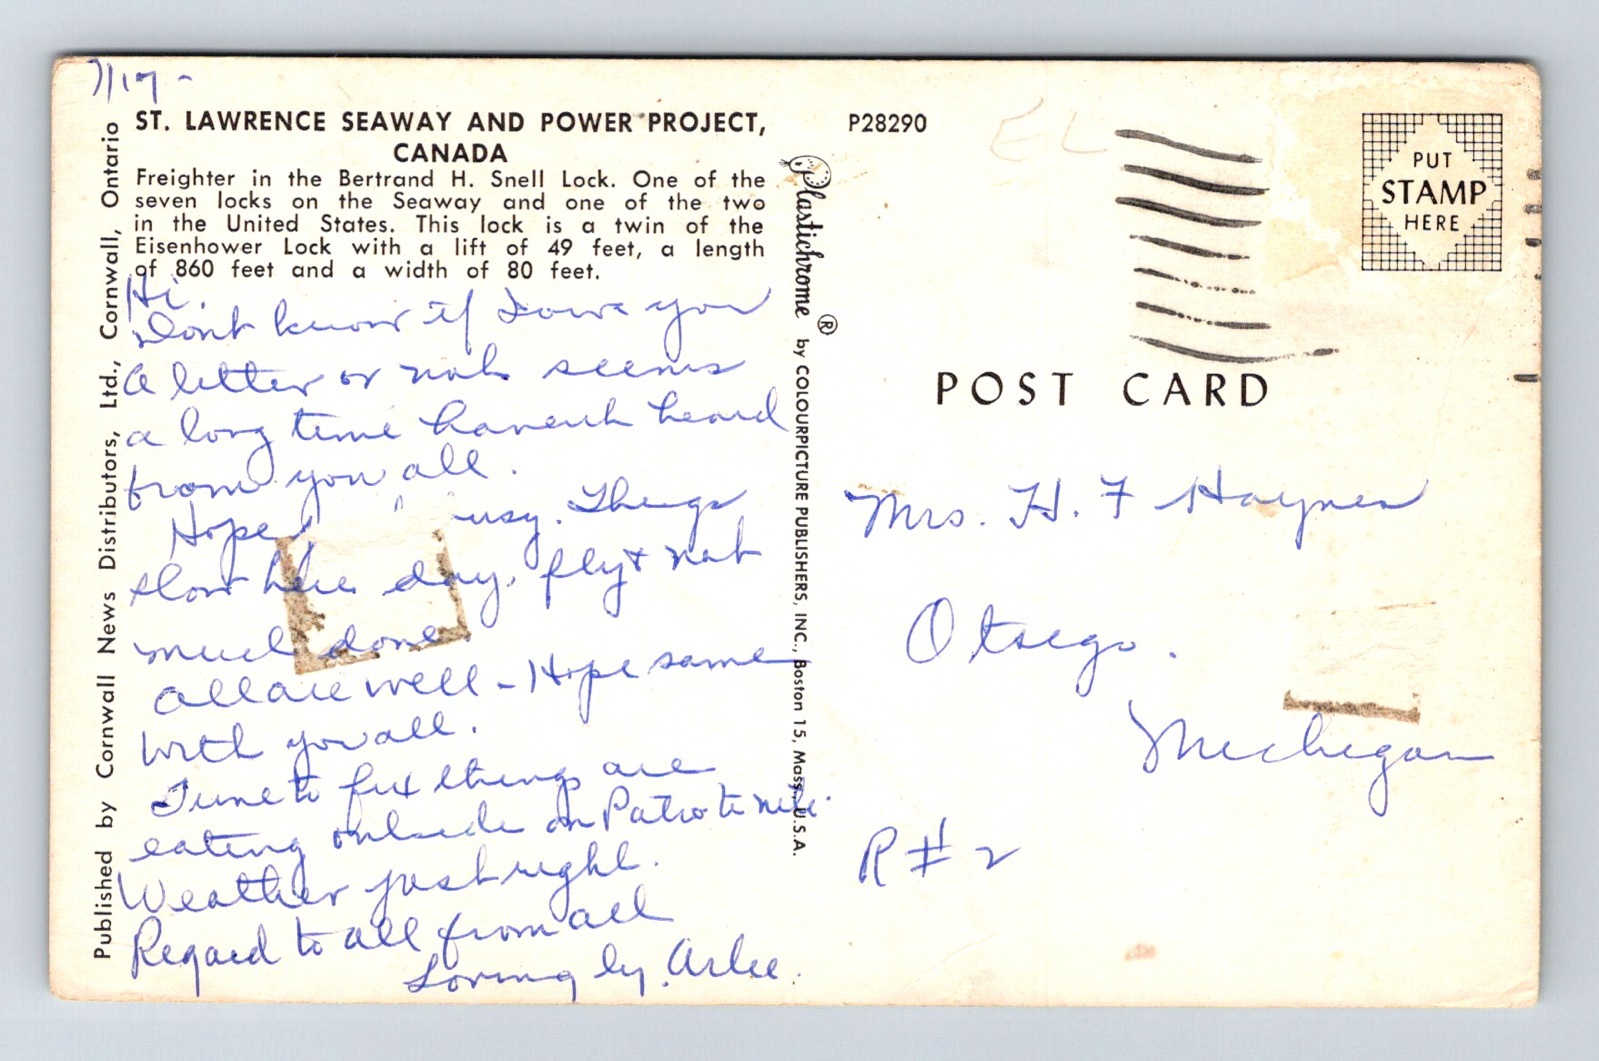 7/17-
ST. LAWRENCE SEAWAY AND POWER PROJECT,
CANADA
Freighter in the Bertrand H. Snell Lock. One of the
seven locks on the Seaway and one of the two
in the United States. This lock is a twin of the
Eisenhower Lock with a lift of 49 feet, a length
of 860 feet and a width of 80 feet.
Hi.
Dont know if I owe you
a letter or not seems
a long time havent heard
from you all.
Hope usy. Things
slow here day. fly & not
much done
all are well - Hope same
with you all.
Time to fix things are
eating outside on Patio to nite.
Weather just right.
Regard to all from all
Lovingly, Arlee.
Published by Cornwall News Distributors, Ltd., Cornwall, Ontario
Plastichrome ® by COLOURPICTURE PUBLISHERS, INC., Boston 15, Mass., U.S.A.
P28290
EL
PUT
STAMP
HERE
POST CARD
Mrs. H. F Haynes
Otsego.
Michigan
R # 2